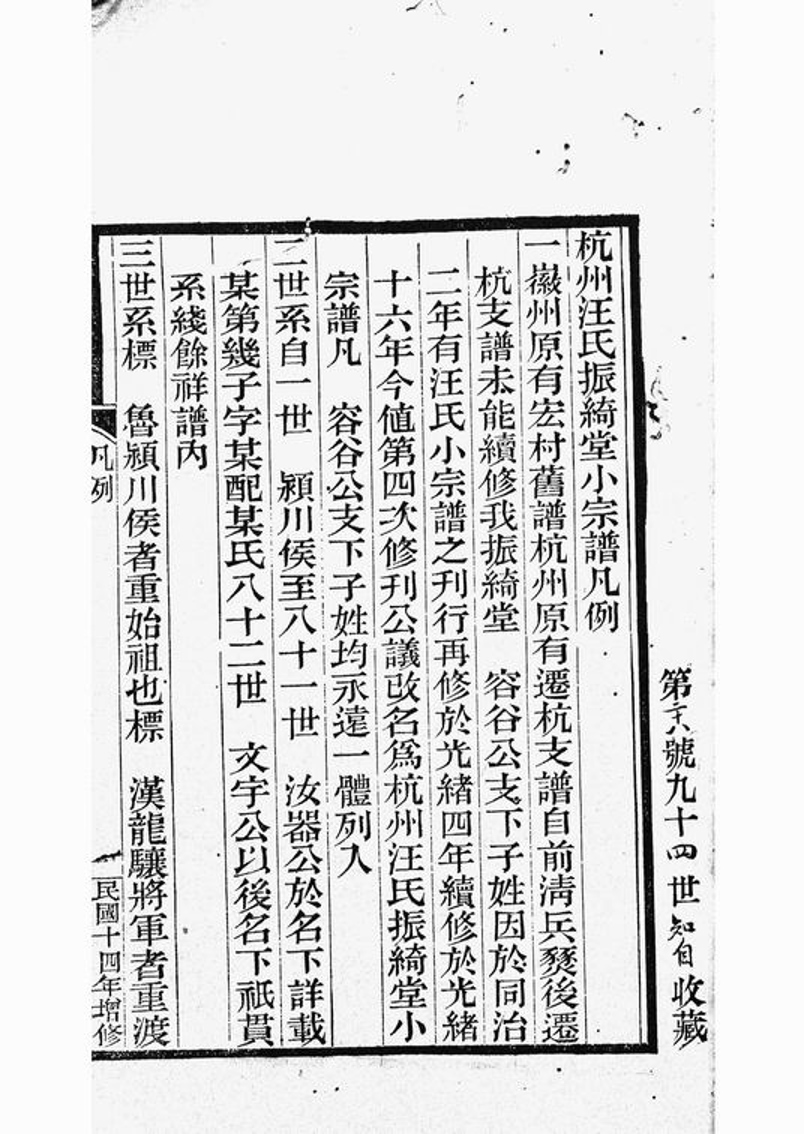 第六號九十四世知自收藏
杭州汪氏振綺堂小宗譜凡例
一徽州原有宏村舊譜杭州原有遷杭支譜自前淸兵燹後遷
杭支譜未能續修我振綺堂　容谷公支下子姓因於同治
二年有汪氏小宗譜之刊行再修於光緒四年續修於光緒
十六年今値第四次修刊公議改名爲杭州汪氏振綺堂小
宗譜凡　容谷公支下子姓均永遠一體列入
二世系自一世　潁川侯至八十一世　汝器公於名下詳載
某第幾子字某配某氏八十二世　文宇公以後名下祇貫
系綫餘祥譜內
三世系標　魯潁川侯者重始祖也標　漢龍驤將軍者重渡
凡例
民國十四年增修